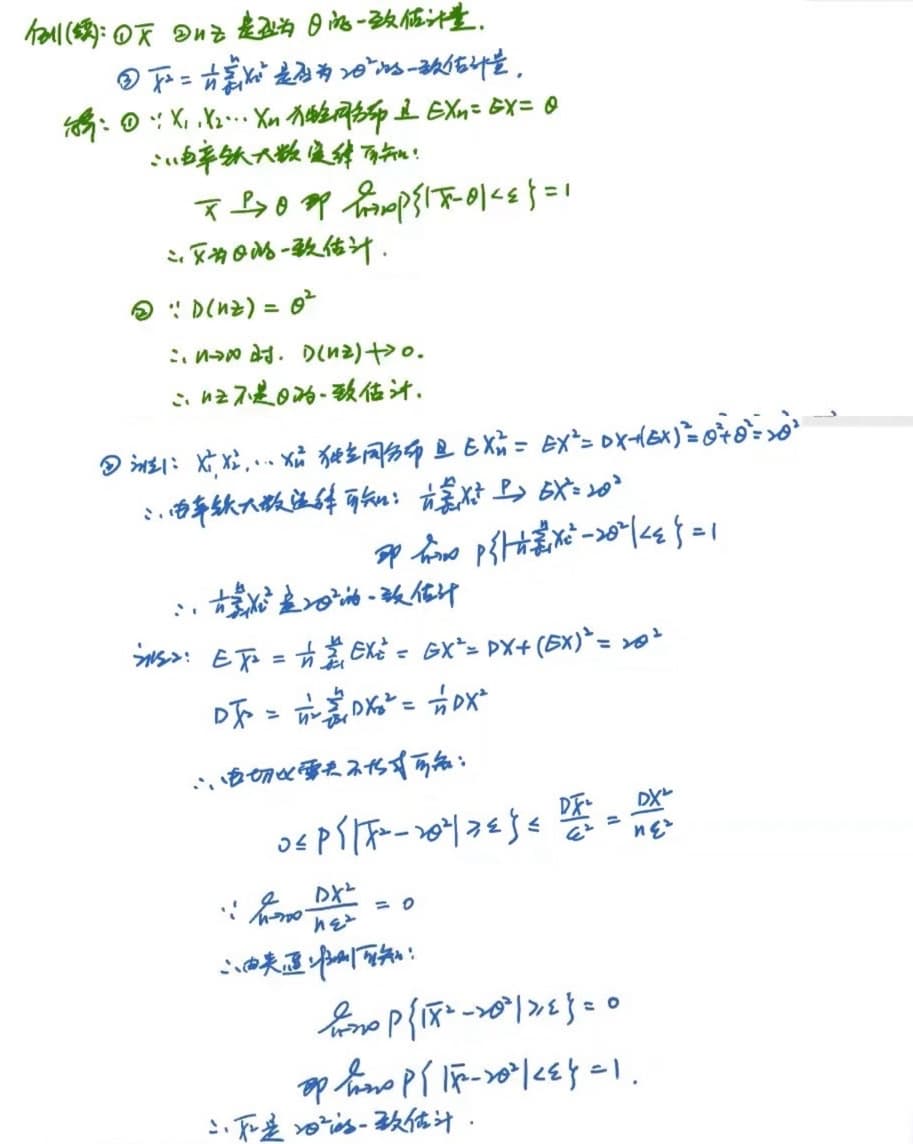 例1(续): ① X̄ ② nZ 是否为 θ 的一致估计量.
③ X̄² = 1/n Σ(i=1→n) Xi² 是否为 2θ² 的一致估计量.
解: ① ∵ X₁, X₂ ⋯ Xn 独立同分布 且 EXn = EX = θ
∴ 由辛钦大数定律可知:
X̄ —P→ θ 即 lim(n→∞) P{|X̄-θ|<ε} = 1
∴ X̄ 为 θ 的一致估计.
② ∵ D(nZ) = θ²
∴ n→∞ 时. D(nZ) ↛ 0.
∴ nZ 不是 θ 的一致估计.
③ 法1: X₁², X₂², ⋯ Xn² 独立同分布 且 EXn² = EX² = DX+(EX)² = θ²+θ² = 2θ²
∴ 由辛钦大数定律可知: 1/n Σ(i=1→n) Xi² —P→ EX² = 2θ²
即 lim(n→∞) P{|1/n Σ(i=1→n) Xi² - 2θ²|<ε} = 1
∴ 1/n Σ(i=1→n) Xi² 是 2θ² 的一致估计
法2: E X̄² = 1/n Σ(i=1→n) EXi² = EX² = DX+(EX)² = 2θ²
D X̄² = 1/n² Σ(i=1→n) DXi² = 1/n DX²
∴ 由切比雪夫不等式可知:
0 ≤ P{|X̄² - 2θ²| ≥ ε} ≤ DX̄²/ε² = DX²/nε²
∵ lim(n→∞) DX²/nε² = 0
∴ 由夹逼准则可知:
lim(n→∞) P{|X̄² - 2θ²| ≥ ε} = 0
即 lim(n→∞) P{|X̄² - 2θ²|<ε} = 1.
∴ X̄² 是 2θ² 的一致估计.